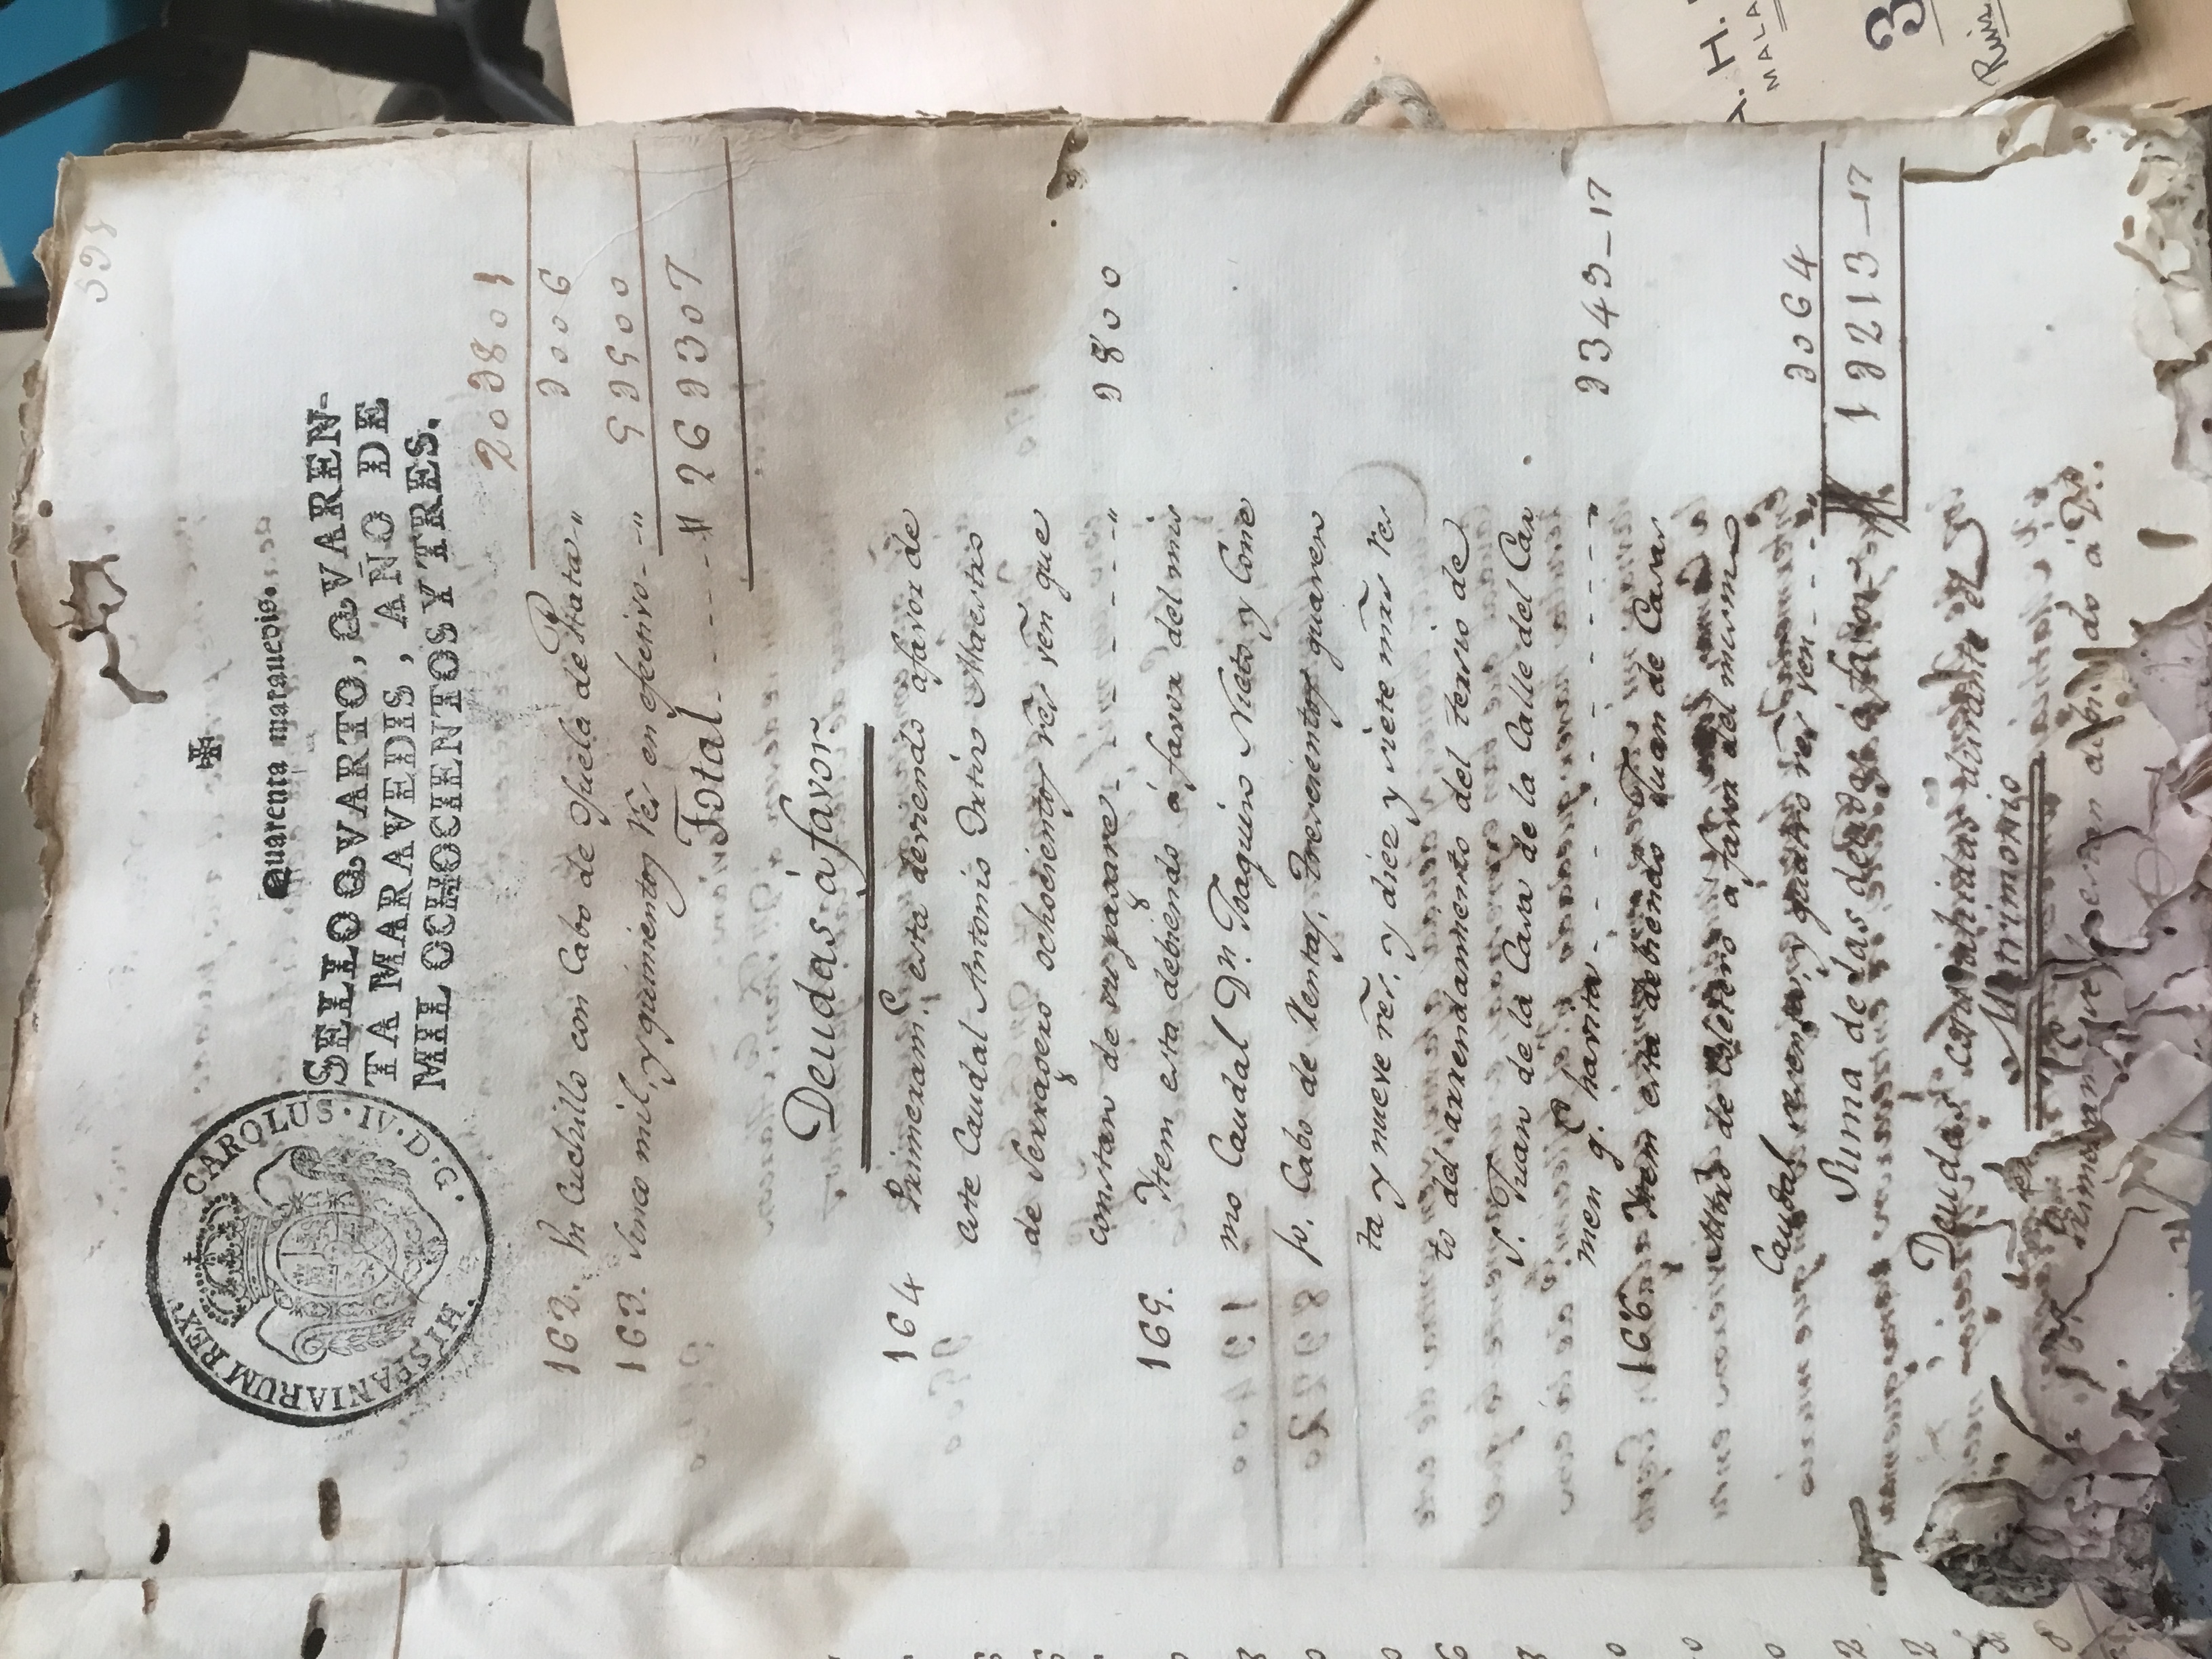 598
Quarenta marauedis.
SELLO QVARTO, QVAREN-
TA MARAVEDIS, AÑO DE
MIL OCHOCIENTOS Y TRES.
CAROLUS · IV · D · G · HISPANIARUM REX ·
203801
162. Un Cuchillo con Cabo de Suela de Plata " 3006
163. Sinco mil, y quinientos rs en efectivo - - " 55500
Total - - - - 262307
Deudas á favor
164 Primeram.te esta deviendo afavor de
este Caudal Antonio Ortiz Maestro
de Serragero ochocientos rs. ven que
constan de su papare - - - - - " 2800
165. Item esta debiendo á favor del mis
mo Caudal Dn. Joaquino Nieto y Cone
jo. Cabo de Rentas, Trescientos quaren
ta y nueve rs., y diez y siete mrs rs
to del arrendamiento del tersio de
S. Juan de la Casa de la Calle del Car
men q.e havita - - - - - - - " 2343-17
166. Item esta debiendo Juan de Casas
Mtro de Coletero a favor del mismo
Caudal sesenta, y quatro rs ven - - - " 3064
Suma de las deudas á favor 13213-17
Deudas contrahidas durante el
Matrimonio
Primeram
debiendo á Dn.
A. H.
MALA
3
Ruis